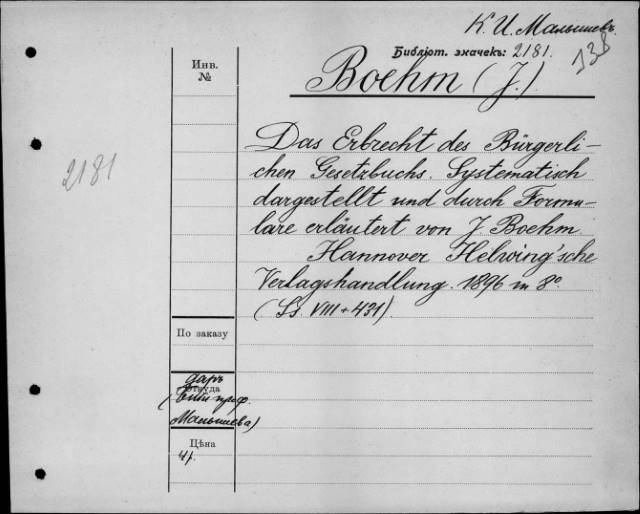 К. И. Малышевъ
138
Библіот. значекъ: 2181.
Boehm (J.).
Инв.
№
2181
Das Erbrecht des Bürgerli-
chen Gesetzbuchs. Systematisch
dargestellt und durch Formu-
lare erläutert von J. Boehm.
Hannover Helwing'sche
Verlagshandlung. 1896 in 8°.
(Ss. VIII + 431).
По заказу
даръ
Откуда
проф.
Малышева)
Цѣна